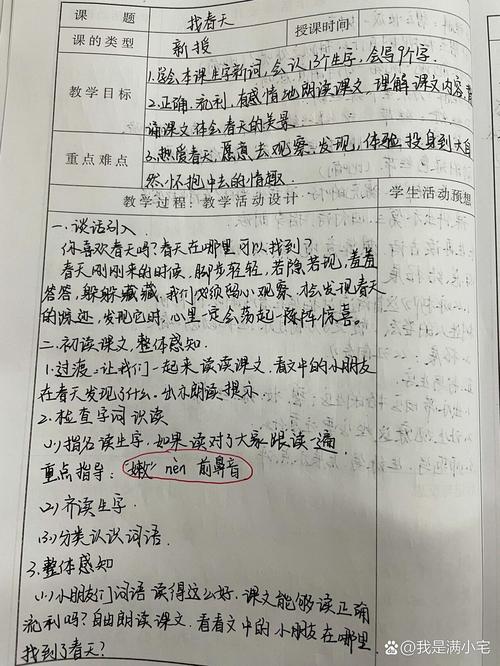 课 题 找春天 授课时间
课的类型 新授
1.学会本课生字新词,会认13个生字,会写9个字.
教学目标 2.正确、流利、有感情地朗读课文,理解课文内容,背
诵课文,体会春天的美景.
重点难点 3.热爱春天,愿意去观察、发现,体验投身到大自
然怀抱中去的情趣.
教学过程:教学活动设计 学生活动预想
一.谈话引入
你喜欢春天吗?春天在哪里可以找到?
春天刚刚来的时候,脚步轻轻,若隐若现,羞羞
答答,躲躲藏藏,我们必须留心观察,才会发现春天
的踪迹,发现它时,心里一定会荡起一阵阵惊喜.
二.初读课文,整体感知.
1.过渡:让我们一起来读读课文,看文中的小朋友
在春天发现了什么.出示朗读提示.
2.检查字词识读
(1)指名读生字,如果读对了大家跟读一遍
重点指导:"嫩" nèn 前鼻音
(2)齐读生字.
(3)分类认识词语.
3.整体感知
(1)小朋友们词语读得这么好,课文能够读正确
流利吗?自由朗读课文,看看文中的小朋友在哪里
找到了春天?
@我是满小宅